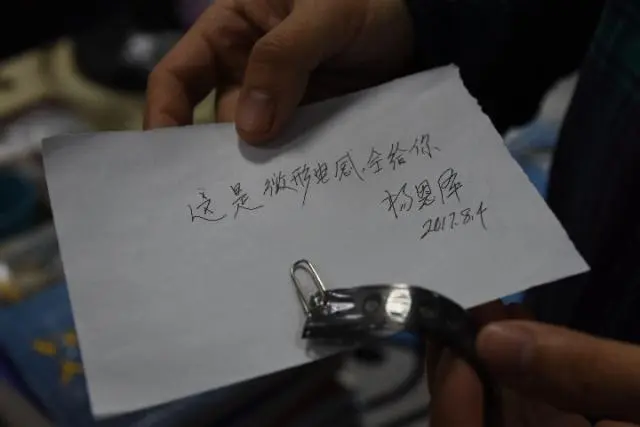 这是微形电感,全给你
杨恩库
2017.8.4